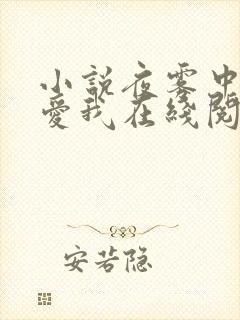 小说夜雾中
爱我在线阅
安若隐